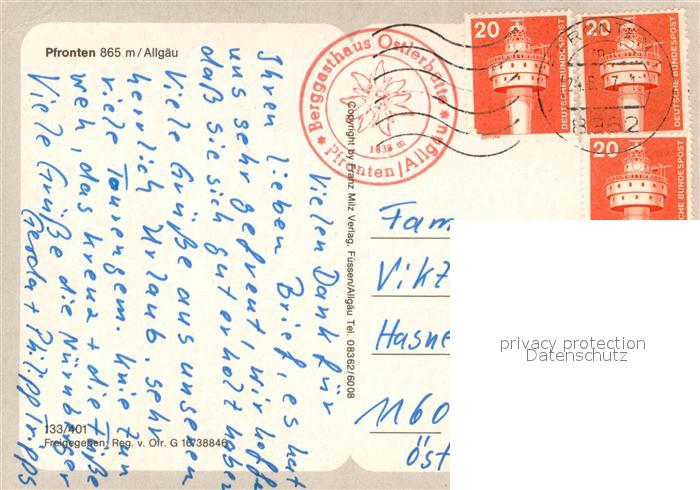 Pfronten 865 m / Allgäu
Vielen Dank für
Ihren lieben Brief, es hat
uns sehr gefreut, wir hoffen
daß sie sich gut erholt haben
Viele Grüße aus unserem
herrlich Urlaub, sehr
viele Touren gem. Knie tun
weh, das Kreuz + die Füße
Viele Grüße die Nürnberger
Gerda + Philipp Tripps
133/401
Freigegeben: Reg. v. Ofr. G 16/38846
Copyright by Franz Milz Verlag, Füssen/Allgäu Tel. 08362/6008
* Berggasthaus Ostlerhütte *
1838 m
Pfronten/Allgäu
20
DEUTSCHE BUNDESPOST
20
DEUTSCHE BUNDESPOST
20
DEUTSCHE BUNDESPOST
8962
Fam
Vikt
Hasne
1160
öst
privacy protection
Datenschutz